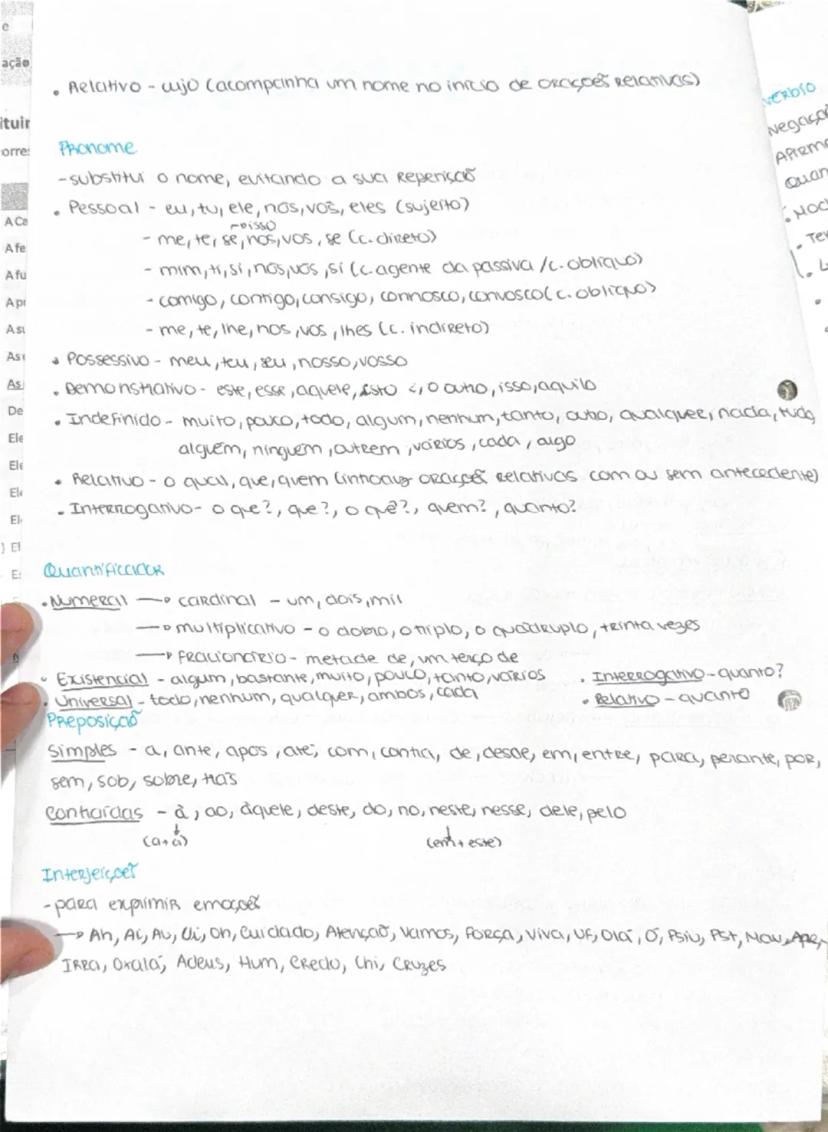 • Relativo - cujo (acompanha um nome no início de orações relativas)
Pronome
- substitui o nome, evitando a sua repetição
• Pessoal - eu, tu, ele, nós, vós, eles (sujeito)
- me, te, se, nos, vos, se (c. direto)
- mim, ti, si, nós, vós, si (c. agente da passiva / c. oblíquo)
- comigo, contigo, consigo, connosco, convosco (c. oblíquo)
- me, te, lhe, nos, vos, lhes (c. indireto)
• Possessivo - meu, teu, seu, nosso, vosso
• Demonstrativo - este, esse, aquele, isto, o outro, isso, aquilo
• Indefinido - muito, pouco, todo, algum, nenhum, tanto, outro, qualquer, nada, tudo,
alguém, ninguém, outrem, vários, cada, algo
• Relativo - o qual, que, quem (introduz orações relativas com ou sem antecedente)
• Interrogativo - o que?, que?, o quê?, quem?, quanto?
Quantificador
• Numeral → cardinal - um, dois, mil
→ multiplicativo - o dobro, o triplo, o quádruplo, trinta vezes
→ fracionário - metade de, um terço de
• Existencial - algum, bastante, muito, pouco, tanto, vários • Interrogativo - quanto?
• Universal - todo, nenhum, qualquer, ambos, cada • Relativo - quanto
Preposição
Simples - a, ante, após, até, com, contra, de, desde, em, entre, para, perante, por,
sem, sob, sobre, trás
Contraídas - à, ao, àquele, deste, do, no, neste, nesse, dele, pelo
(a+a) (em+este)
Interjeições
- para exprimir emoções
→ Ah, Ai, Au, Ui, Oh, Cuidado, Atenção, Vamos, Força, Viva, Uf, Olá, Ó, Psiu, Pst,
Irra, Oxalá, Adeus, Hum, Credo, Chi, Cruzes